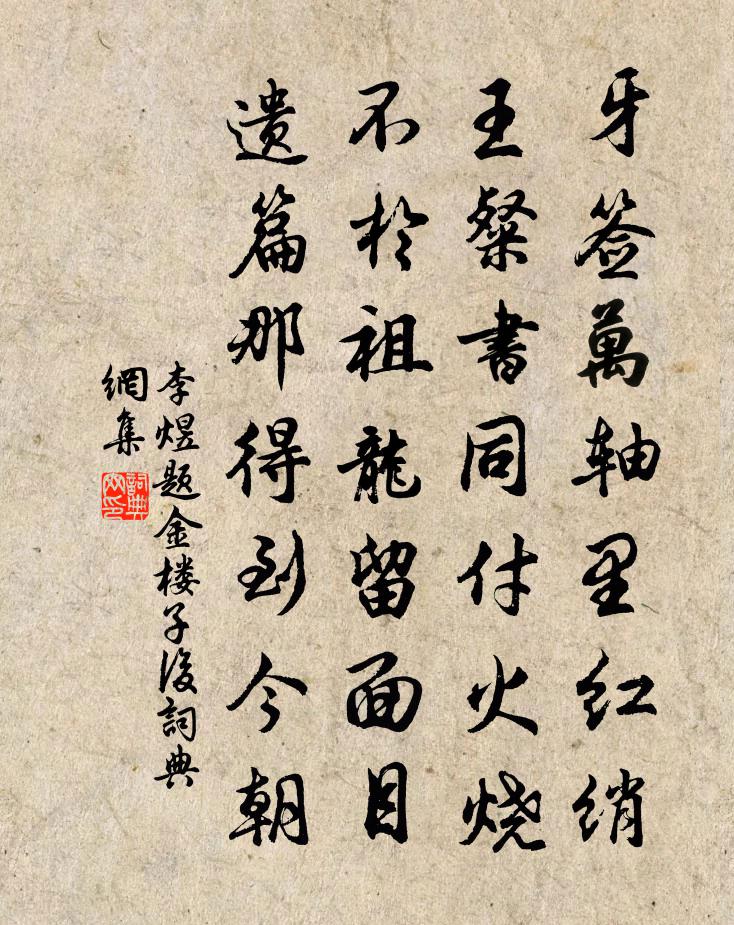 牙签萬轴里红绡
王粲書同付火烧
不於祖龍留面目
遗篇那得到今朝
李煜题金楼子後詞典
網集
詞典
网印